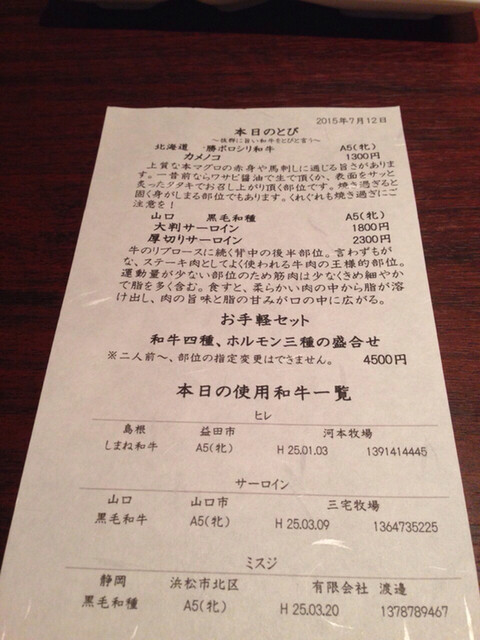 2015年7月12日
本日のとび
～抜群に旨い和牛をとびと言う～
北海道 勝ポロシリ和牛 A5(牝)
カメノコ 1300円
上質な本マグロの赤身や馬刺しに通じる旨さがありま
す。一昔前ならワサビ醤油で生で頂くか、表面をサッと
炙ったタタキでお召し上がり頂く部位です。焼き過ぎると
固く身がしまる部位でもあります。くれぐれも焼き過ぎにご
注意を！
山口 黒毛和種 A5(牝)
大判サーロイン 1800円
厚切りサーロイン 2300円
牛のリブロースに続く背中の後半部位。言わずもが
な、ステーキ肉としてよく使われる牛肉の王様的部位。
運動量が少ない部位のため筋肉は少なくきめ細やか
で脂を多く含む。食すと、柔らかい肉の中から脂が溶
け出し、肉の旨味と脂の甘みが口の中に広がる。
お手軽セット
和牛四種、ホルモン三種の盛合せ
※二人前～、部位の指定変更はできません。 4500円
本日の使用和牛一覧
ヒレ
島根 益田市 河本牧場
しまね和牛 A5(牝) H 25.01.03 1391414445
サーロイン
山口 山口市 三宅牧場
黒毛和牛 A5(牝) H 25.03.09 1364735225
ミスジ
静岡 浜松市北区 有限会社 渡邉
黒毛和種 A5(牝) H 25.03.20 1378789467